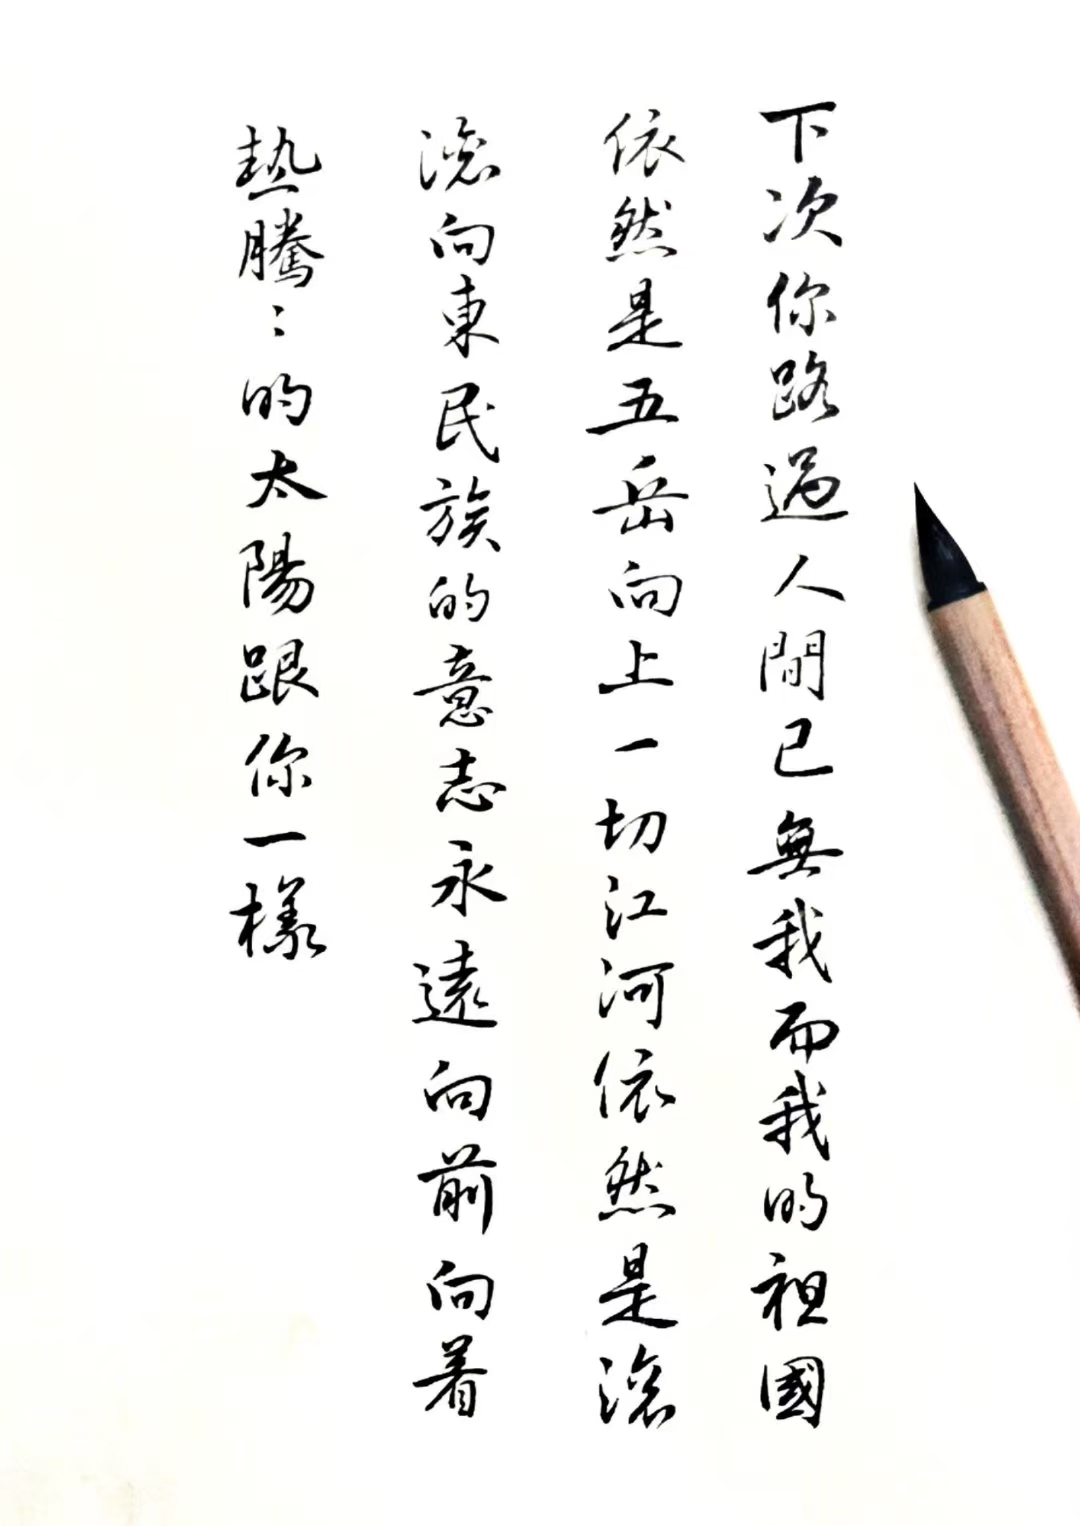 下次你路過人間已無我而我的祖國
依然是五岳向上一切江河依然是滾
滾向東民族的意志永遠向前向着
熱騰〻的太陽跟你一樣